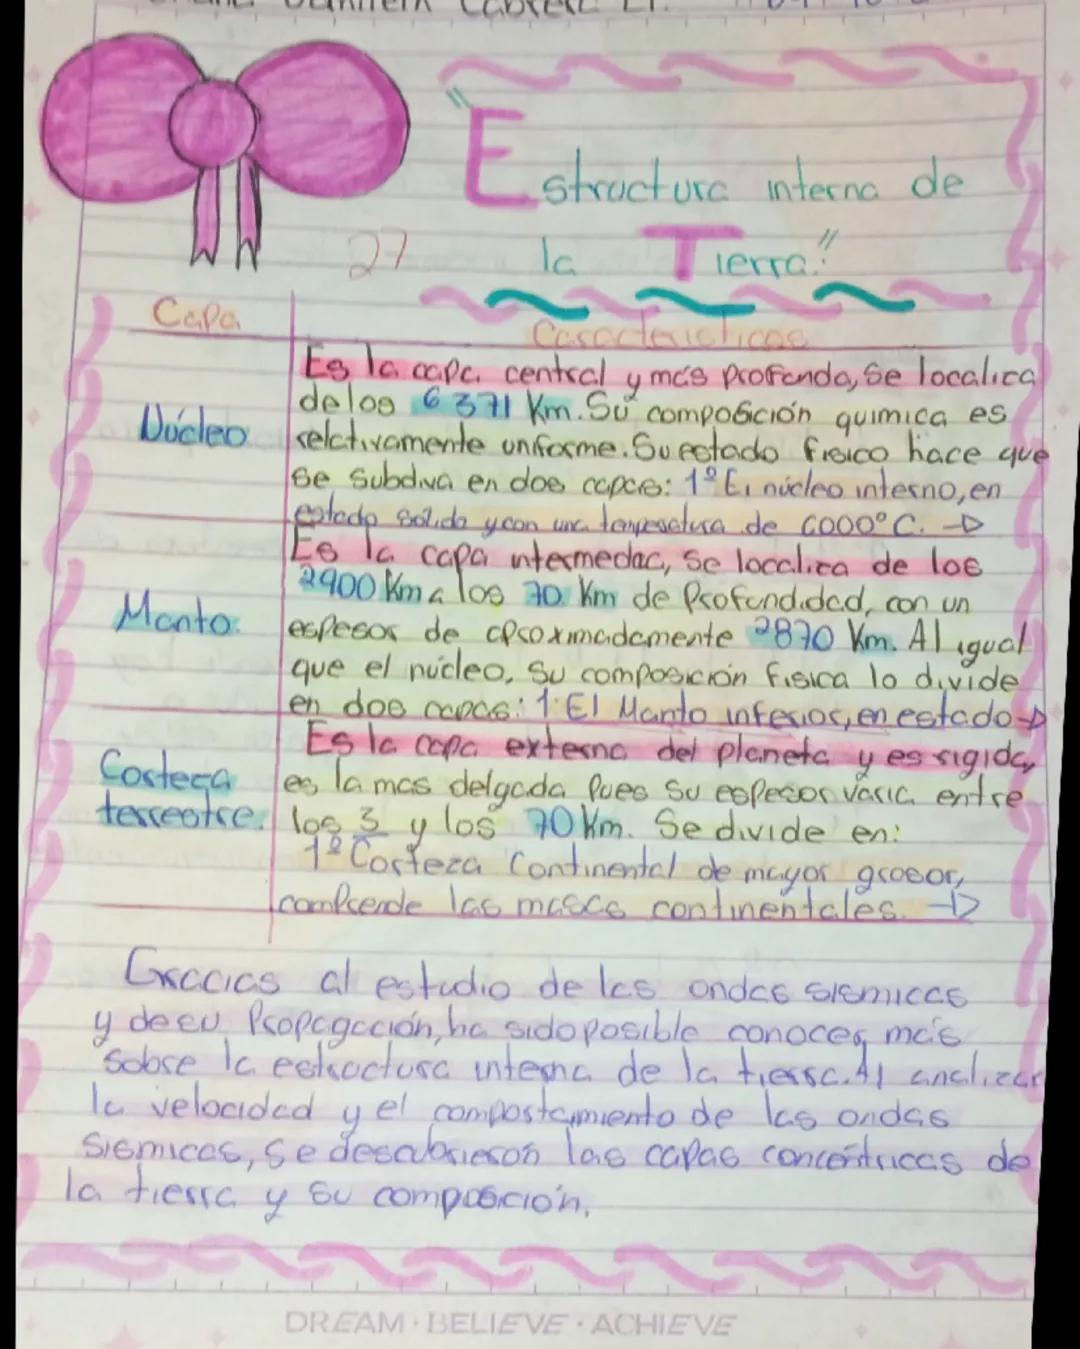 "Estructura interna de
la Tierra."
27
Capa
Caracteristicas
Núcleo
Es la capa central y más profunda, se localica
de los 6 371 Km. Su composición quimica es
relativamente uniforme. Su estado fisico hace que
se subdiva en dos capas: 1º El núcleo interno, en
estado solido y con una temperatura de 6000°C. →
Manto.
Es la capa intermedac, se localiza de los
2900 Km a los 70 Km de profundidad, con un
espesor de aproximadamente 2870 Km. Al igual
que el núcleo, su composición fisica lo divide
en dos capas: 1. El Manto inferior, en estado →
Corteza
terrestre.
Es la capa externa del planeta y es rigida,
es la mas delgada pues su espesor varia entre
los 3 y los 70 Km. Se divide en:
1º Corteza Continental de mayor grosor,
comprende las masas continentales. →
Gracias al estudio de las ondas sismicas
y de su propagación, ha sido posible conocer más
sobre la estructura interna de la tierra. Al analizar
la velocidad y el comportamiento de las ondas
sismicas, se descubrieron las capas concéntricas de
la tierra y su composición.
DREAM · BELIEVE · ACHIEVE